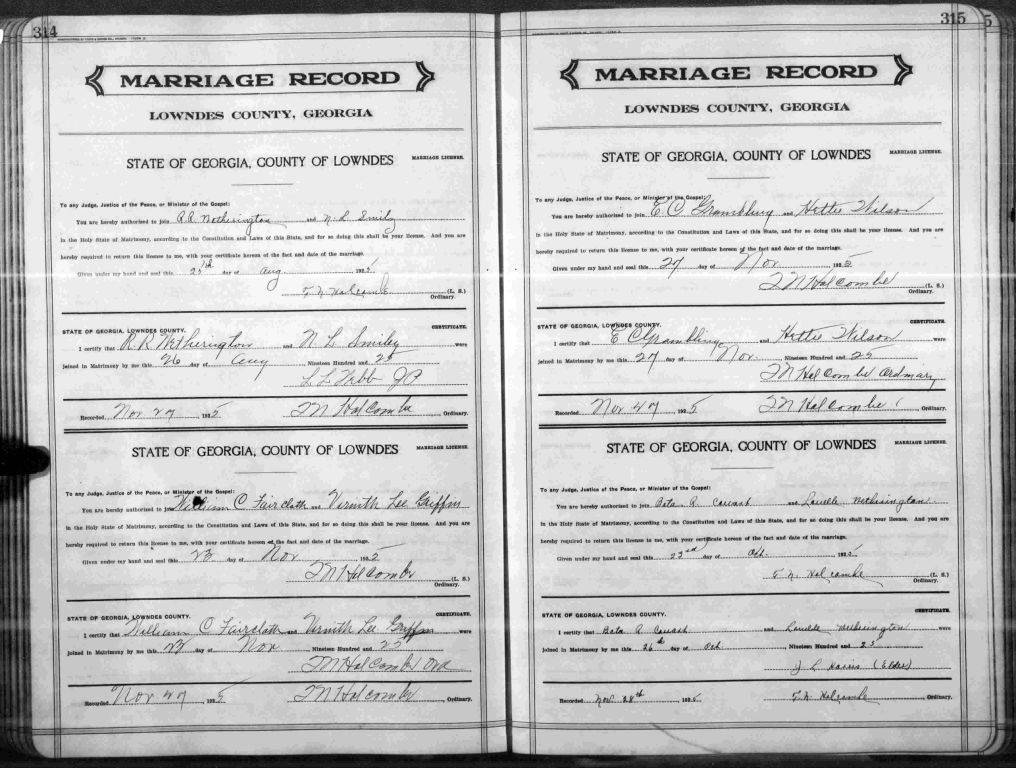 314
MARRIAGE RECORD
LOWNDES COUNTY, GEORGIA
STATE OF GEORGIA, COUNTY OF LOWNDES MARRIAGE LICENSE.
To any Judge, Justice of the Peace, or Minister of the Gospel:
You are hereby authorized to join R.R. Netherington and N. L. Smiley
in the Holy State of Matrimony, according to the Constitution and Laws of this State, and for so doing this shall be your license. And you are
hereby required to return this license to me, with your certificate hereon of the fact and date of the marriage.
Given under my hand and seal this 25th day of Aug 1925
T. N. Holcombe (L. S.)
Ordinary.
STATE OF GEORGIA, LOWNDES COUNTY. CERTIFICATE.
I certify that R R Wetherington and N. L. Smiley were
joined in Matrimony by me this 26 day of Aug, Nineteen Hundred and 25
L L Webb JP
Recorded Nov 27, 1925 T N Holcombe, Ordinary.
STATE OF GEORGIA, COUNTY OF LOWNDES MARRIAGE LICENSE.
To any Judge, Justice of the Peace, or Minister of the Gospel:
You are hereby authorized to join William C Faircloth and Vernith Lee Griffin
in the Holy State of Matrimony, according to the Constitution and Laws of this State, and for so doing this shall be your license. And you are
hereby required to return this license to me, with your certificate hereon of the fact and date of the marriage.
Given under my hand and seal this 23 day of Nov 1925
T N Holcombe (L. S.)
Ordinary.
STATE OF GEORGIA, LOWNDES COUNTY. CERTIFICATE.
I certify that William C Faircloth and Vernith Lee Griffin were
joined in Matrimony by me this day of Nov, Nineteen Hundred and 25
T N Holcombe Ord
Nov 27 1925 T N Holcombe, Ordinary.
315
MARRIAGE RECORD
LOWNDES COUNTY, GEORGIA
STATE OF GEORGIA, COUNTY OF LOWNDES MARRIAGE LICENSE.
To any Judge, Justice of the Peace, or Minister of the Gospel:
You are hereby authorized to join E. C. Grambling and Hattie Wilson
in the Holy State of Matrimony, according to the Constitution and Laws of this State, and for so doing this shall be your license. And you are
hereby required to return this license to me, with your certificate hereon of the fact and date of the marriage.
Given under my hand and seal this 27 day of Nov 1925
T N Holcombe (L. S.)
Ordinary.
STATE OF GEORGIA, LOWNDES COUNTY. CERTIFICATE.
I certify that E C Grambling and Hattie Wilson were
joined in Matrimony by me this 27 day of Nov., Nineteen Hundred and 25
T N Holcombe Ordinary
Recorded Nov 27, 1925 T N Holcombe, Ordinary.
STATE OF GEORGIA, COUNTY OF LOWNDES MARRIAGE LICENSE.
To any Judge, Justice of the Peace, or Minister of the Gospel:
You are hereby authorized to join R. and Louelle Wetherington
in the Holy State of Matrimony, according to the Constitution and Laws of this State, and for so doing this shall be your license. And you are
hereby required to return this license to me, with your certificate hereon of the fact and date of the marriage.
Given under my hand and seal this 23rd day of Oct. 1925
T. N. Holcombe (L. S.)
Ordinary.
STATE OF GEORGIA, LOWNDES COUNTY. CERTIFICATE.
I certify that R. and Louelle Wetherington were
joined in Matrimony by me this 26th day of Oct, Nineteen Hundred and 25
(Elder)
Recorded Nov. 28th 1925 T. N. Holcombe, Ordinary.